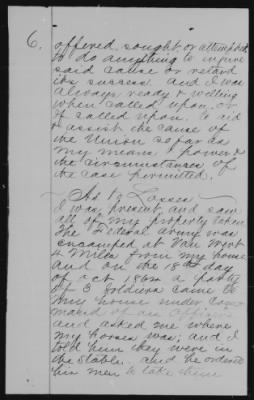 6.
offered, sought, or attempted
to do anything to injure
said cause or retard
its success. And I was
always ready & willing
when called upon, or
if called upon, to aid
& assist the cause of
the Union so far as
my means, & power &
the circumstances of
the case permitted.
As to Losses
I was present, and saw
all of my property taken
The Federal army was
encamped at Van Wert
4 Miles from my house
and on the 15th day
of oct 1864 a party
of 3 soldiers came to
my house under Com
mand of an officer
and asked me where
my horses was, and I
told him they were in
the stable. and he ordered
his men to take them